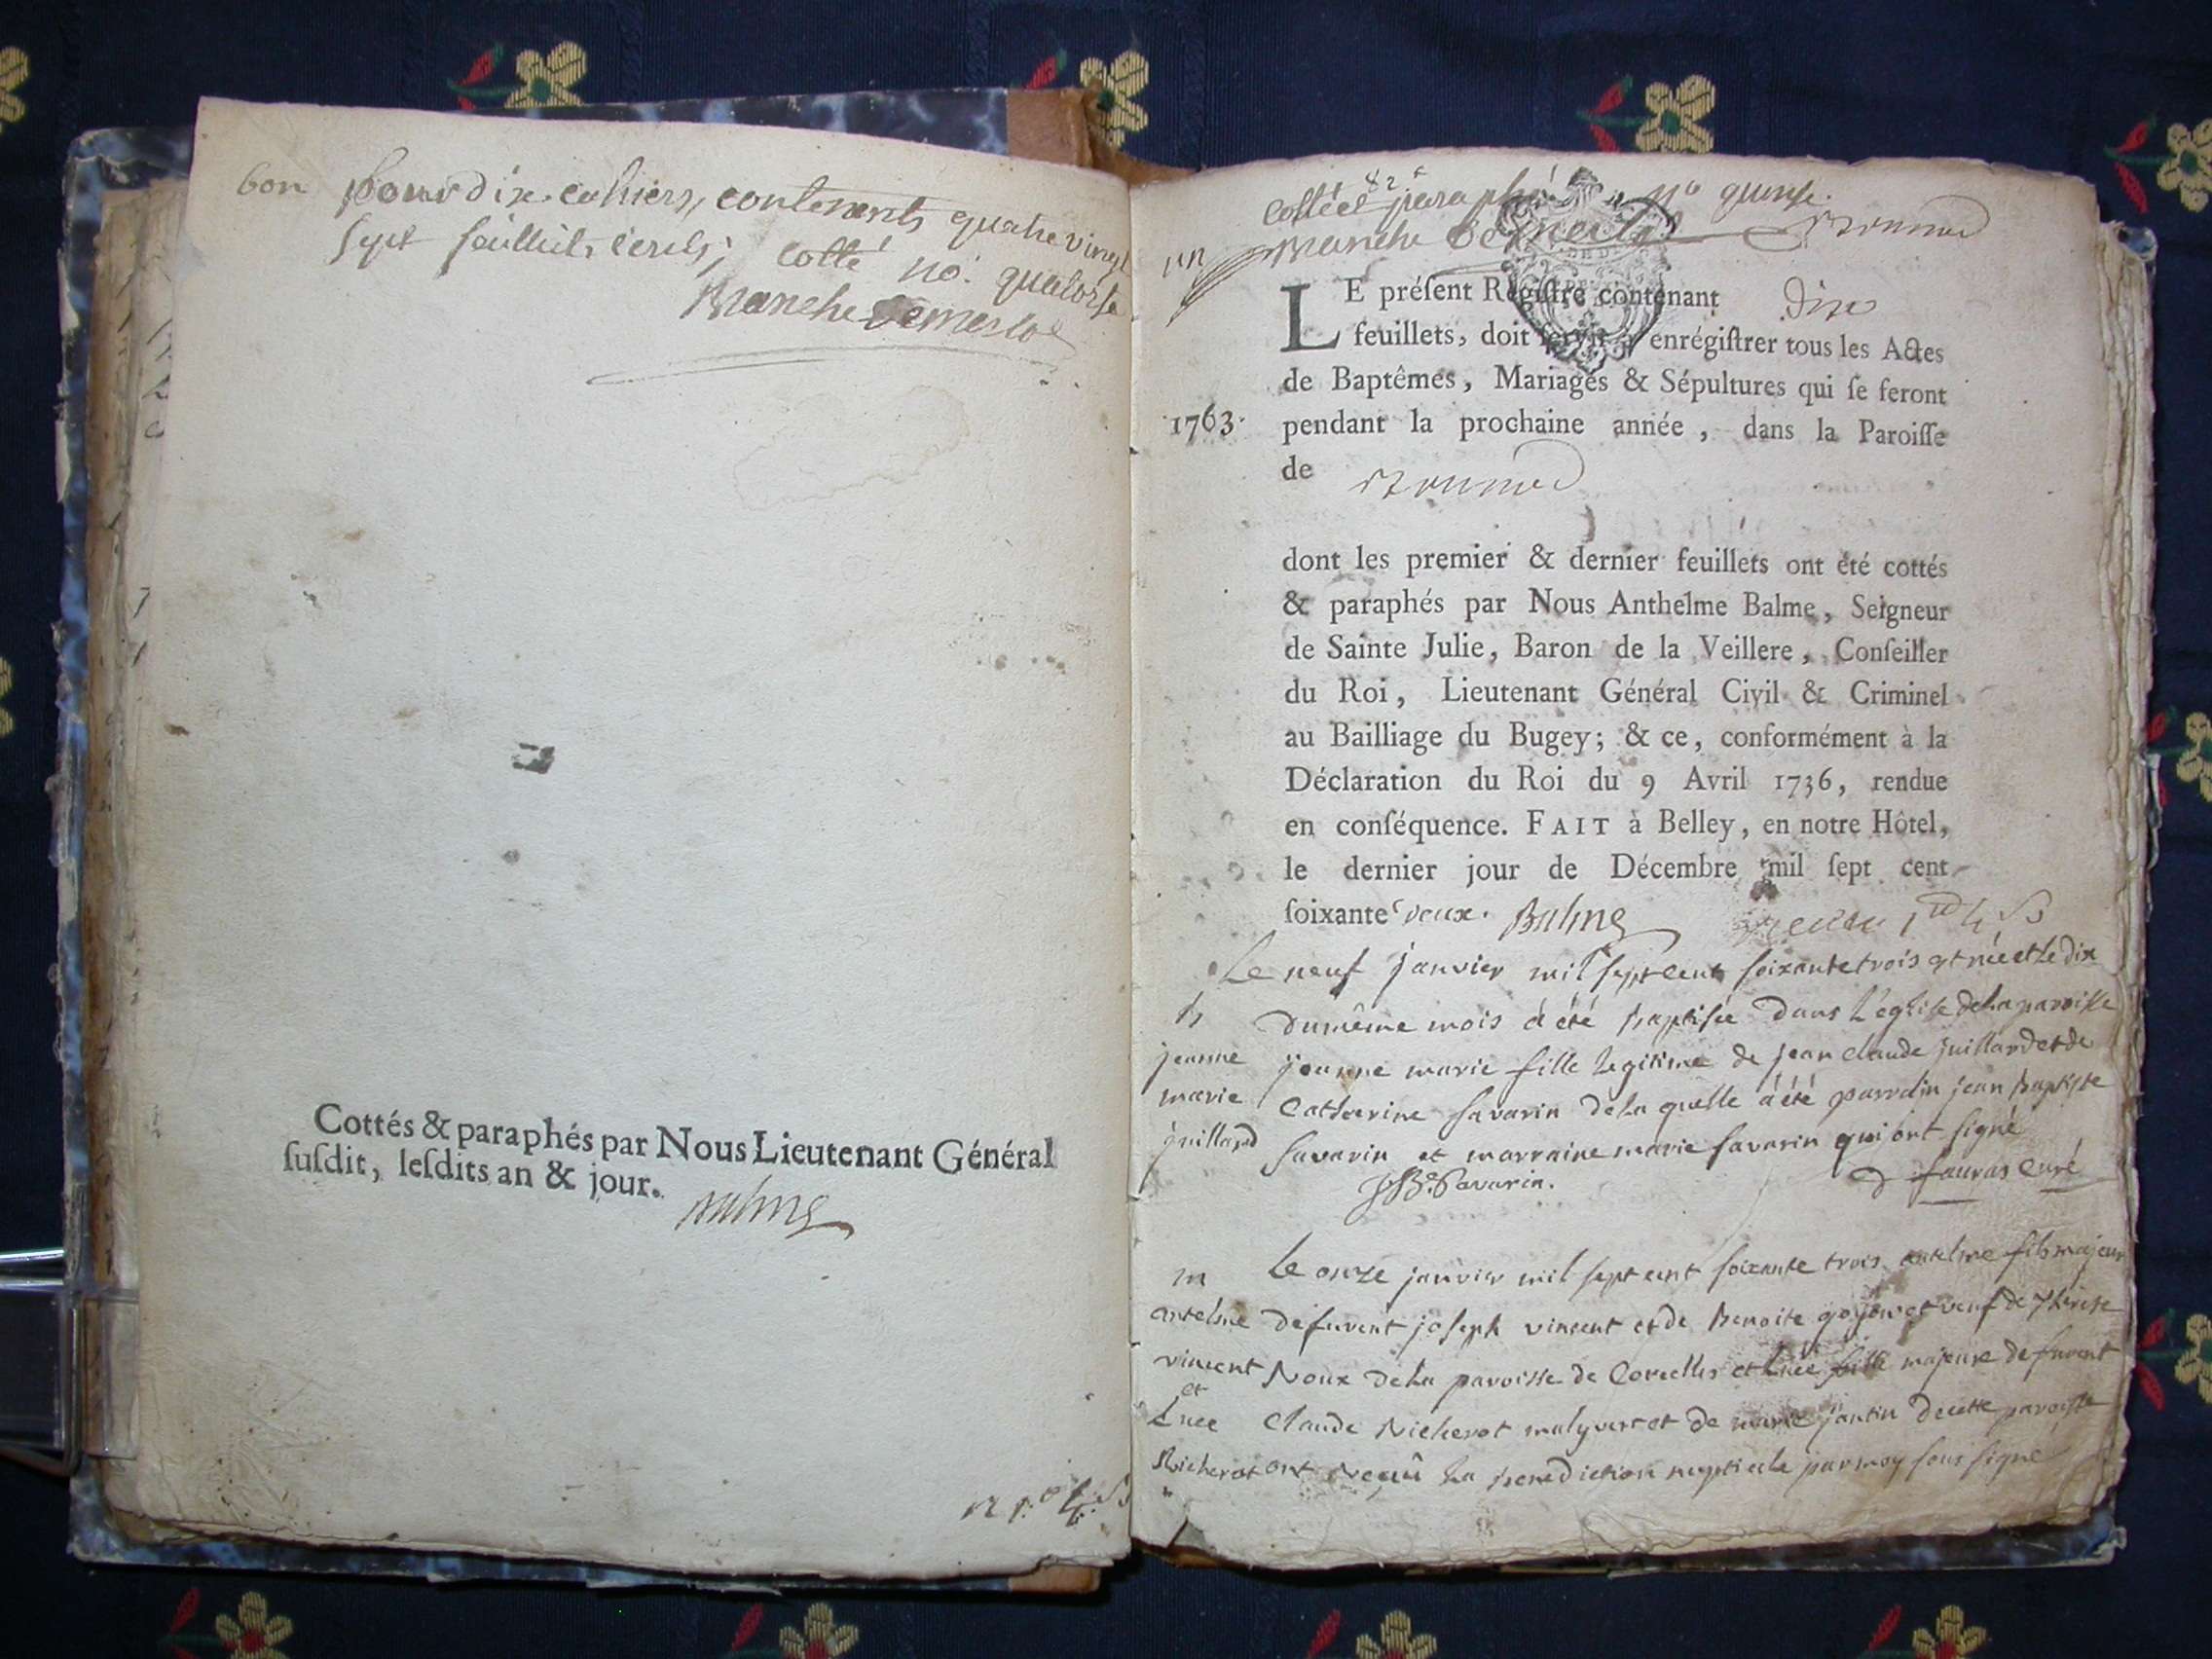 bon pour dix cahiers, contenants quatre vingt
sept feuillets cerits; cotté no. quatorse
Cottés & paraphés par Nous Lieutenant Général
ſuſdit, leſdits an & jour.
Balme
cottée et paraphé no quinse.
un
LE préſent Regiſtre contenant dix
feuillets, doit ſervir à enrégiſtrer tous les Actes
de Baptêmes, Mariages & Sépultures qui ſe feront
1763. pendant la prochaine année, dans la Paroiſſe
de
dont les premier & dernier feuillets ont été cottés
& paraphés par Nous Anthelme Balme, Seigneur
de Sainte Julie, Baron de la Veillere, Conſeiller
du Roi, Lieutenant Général Civil & Criminel
au Bailliage du Bugey; & ce, conformément à la
Déclaration du Roi du 9 Avril 1736, rendue
en conſéquence. FAIT à Belley, en notre Hôtel,
le dernier jour de Décembre mil ſept cent
ſoixante deux. Balme
Le neuf janvier mil sept cent soixante trois est née et le dix
b du même mois a été baptisée dans l'église de la paroisse
jeanne jeanne marie fille legitime de jean claude juillard et de
marie catherine savarin de la quelle a été parrain jean baptiste
juillard savarin et marraine marie savarin qui ont signé
JB. Savarin. d fauras curé
m Le onze janvier mil sept cent soixante trois antelme fils majeur
antelme de fuvent joseph vincent et de benoite gojon et veuf de therese
vincent Roux de la paroisse de Corcelles et Lucé fille majeure de fuvent
et
Lucé claude Richerot et de marie jantin de cette paroisse
Richerot ont reçu la benediction nuptiale par moy sous signé